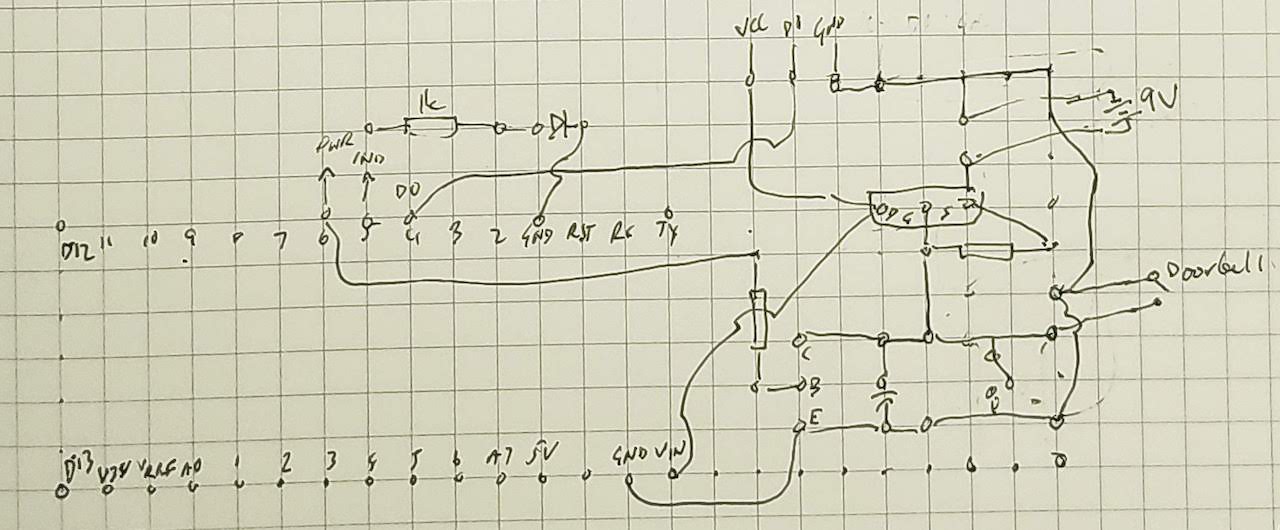 VCC D1 GND
1k
9V
PWR IND
D0
D12 11 10 9 8 7 6 5 4 3 2 GND RST RX TX
D G S
Doorbell
C
B
E
D13 V3V VREF A0 1 2 3 4 5 6 A7 5V GND VIN